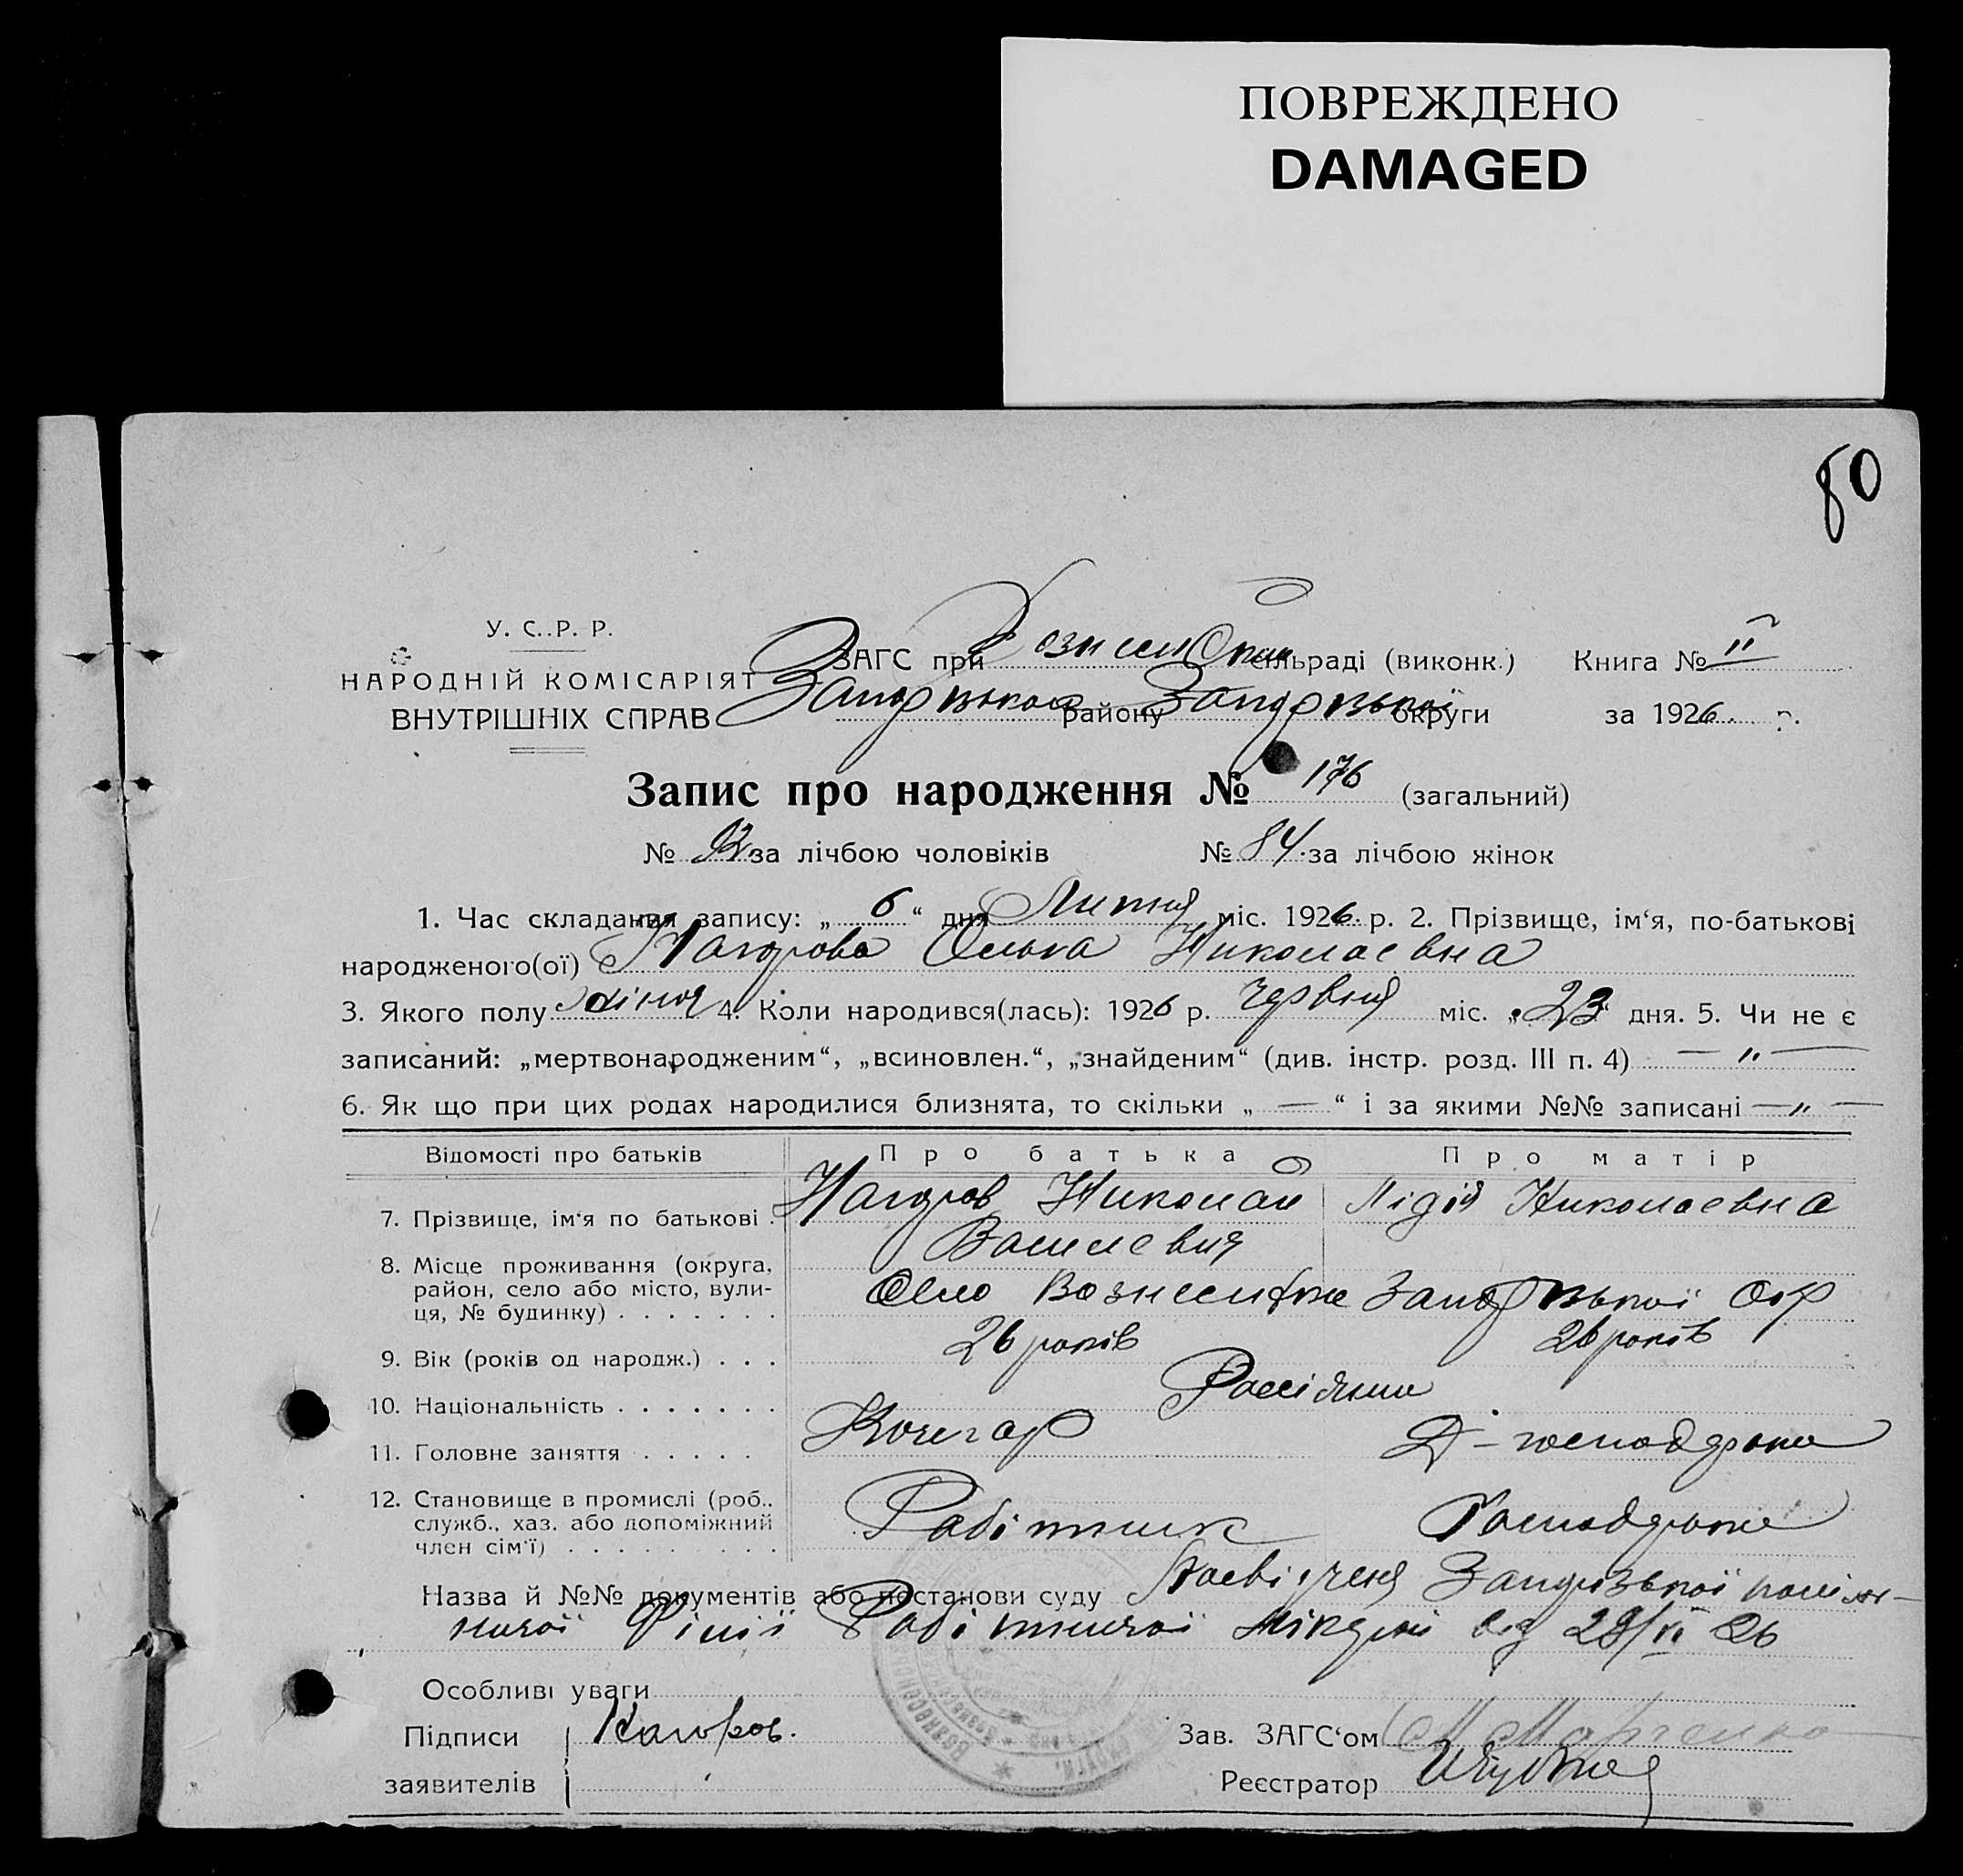 ПОВРЕЖДЕНО
DAMAGED
80
У. С. Р. Р.
НАРОДНІЙ КОМІСАРІЯТ
ВНУТРІШНІХ СПРАВ
ЗАГС при Вознесенської сільраді (виконк.) Книга № II
Запорізького району Запорізької округи за 1926 р.
Запис про народження № 176 (загальний)
№ 92 за лічбою чоловіків № 84 за лічбою жінок
1. Час складання запису: „ 6 “ дня Липня міс. 1926 р. 2. Прізвище, ім‘я, по-батькові
народженого(ої) Ольга Николаевна
3. Якого полу жіноч 4. Коли народився(лась): 1926 р. червня міс. „ 23 “ дня. 5. Чи не є
записаний: „мертвонародженим“, „всиновлен.“, „знайденим“ (див. інстр. розд. III п. 4) — „ —
6. Як що при цих родах народилися близнята, то скільки „ — “ і за якими №№ записані — „ —
Відомості про батьків Про батька Про матір
7. Прізвище, ім‘я по батькові . Николай Лідія Николаевна
Василевич
8. Місце проживання (округа,
район, село або місто, вули-
ця, № будинку) . . . . . . . Село Вознесенка Запорізької Окр
9. Вік (років од народж.) . . . 26 років 26 років
10. Національність . . . . . . . Россіяни
11. Головне заняття . . . . . Кочегар Д-господарка
12. Становище в промислі (роб.,
служб., хаз. або допоміжний
член сім‘ї) . . . . . . . . . Робітник Господарка
Назва й №№ документів або постанови суду Посвідченя Запорізької
Філії Робітничої від 29/VI 26
Особливі уваги
Підписи
заявителів
Зав. ЗАГС‘ом Марченко
Реєстратор